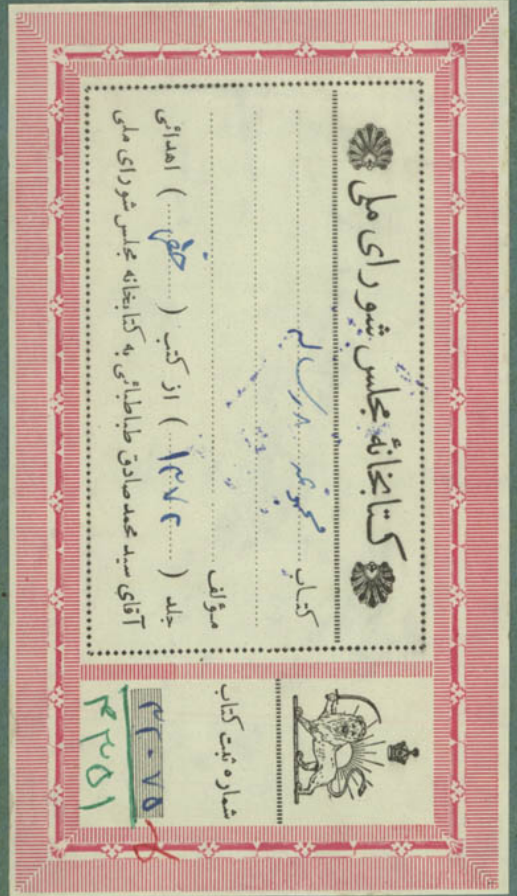 کتابخانهٔ مجلس شورای ملی
کتاب مجموعه ۸ رساله
مؤلف
جلد (۱۲۷۲) از کتب (خطی) اهدائی
آقای سید محمد صادق طباطبائی به کتابخانه مجلس شورای ملی
شماره ثبت کتاب